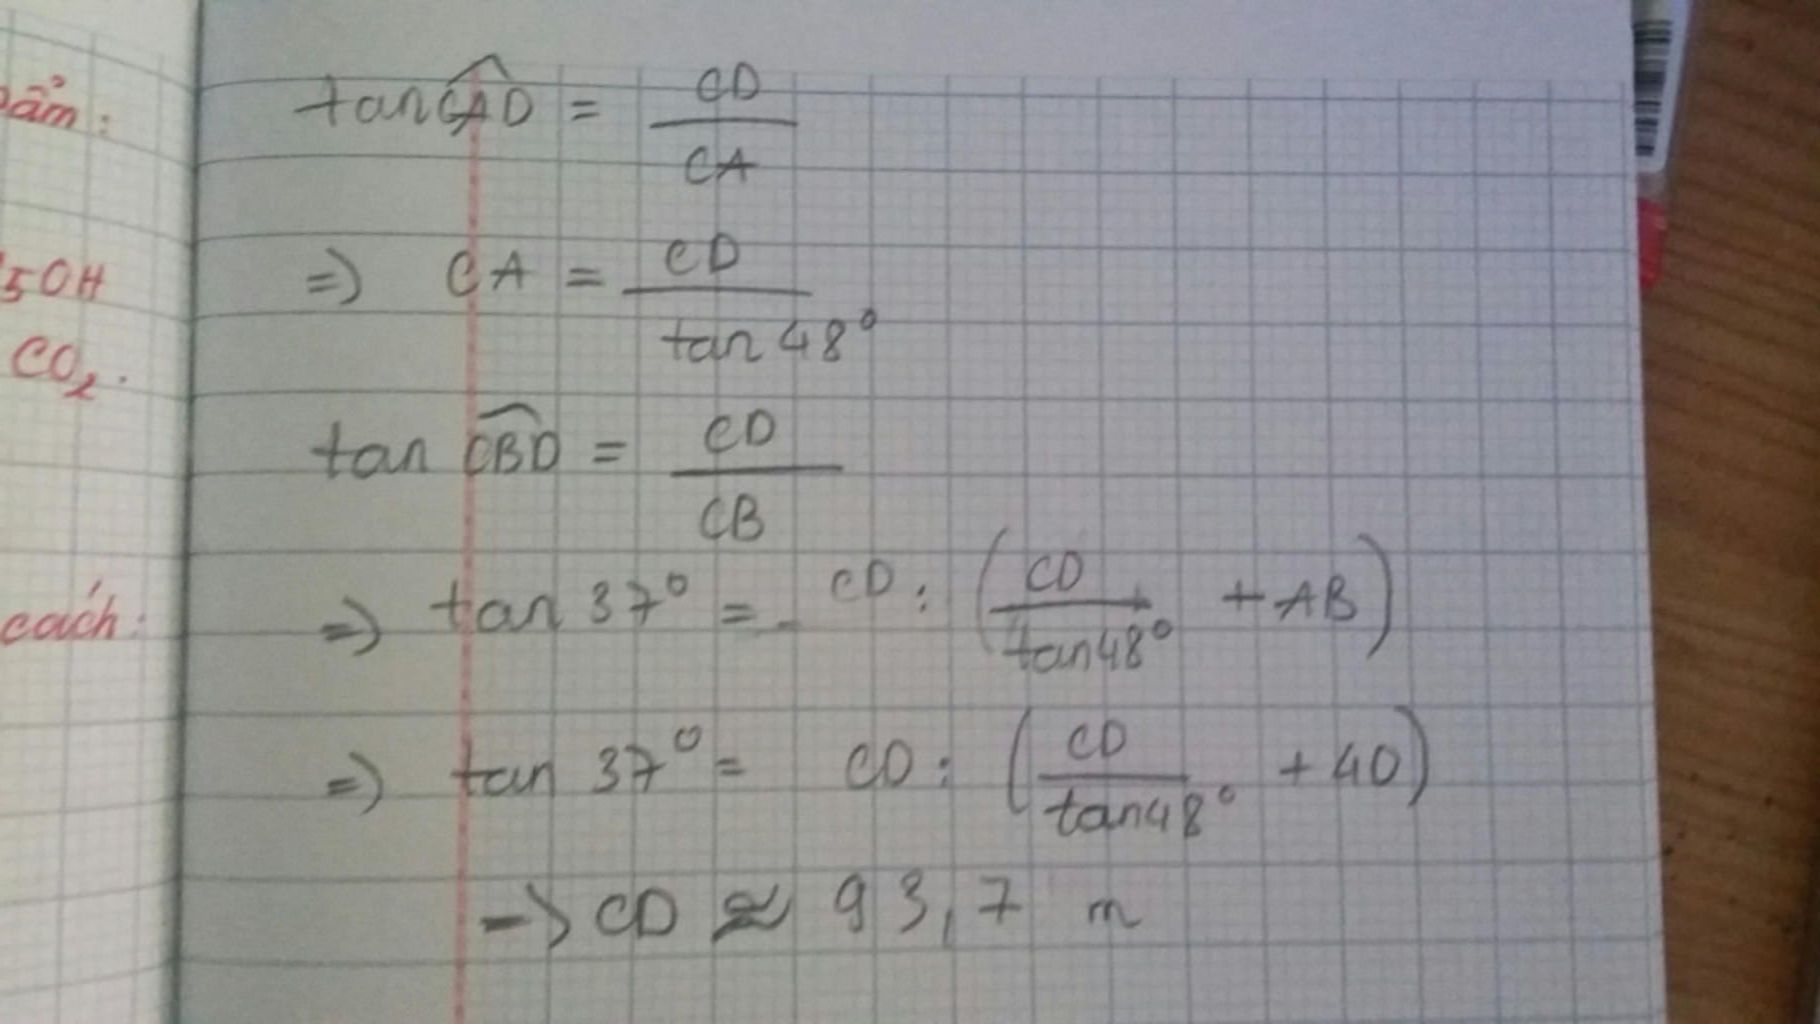 ẩm:
5OH
CO₂.
cách:
tan CAD = CD / CA
=> CA = CD / tan 48°
tan CBD = CD / CB
=> tan 37° = CD : ( CD / tan48° + AB )
=> tan 37° = CD : ( CD / tan48° + 40 )
-> CD ≈ 93,7 m